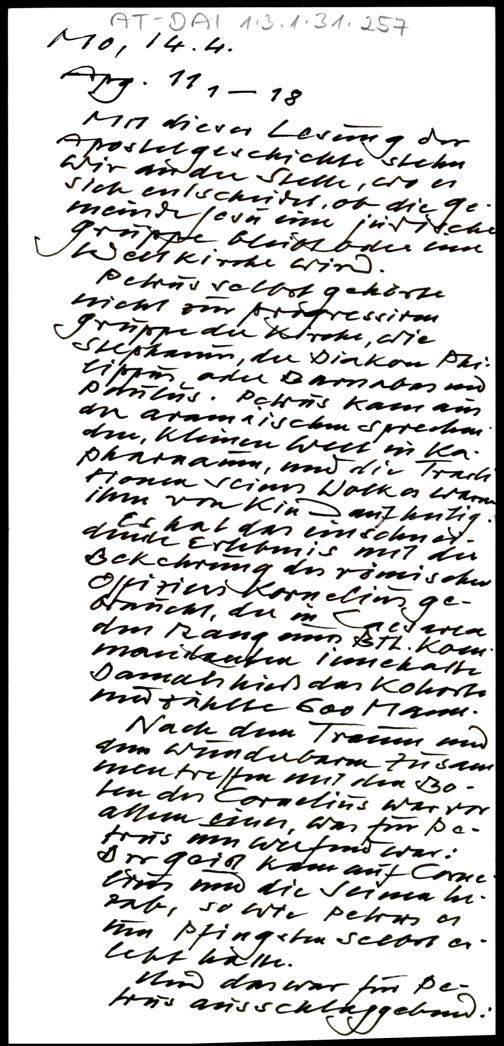 AT-DAI 1.3.1.31.257
Mo, 14.4.
Apg. 11 1-18
Mit dieser Lesung der
Apostelgeschichte stehn
wir an der Stelle, wo es
sich entscheidet, ob die Ge-
meinde Jesu eine jüdische
Gruppe bleibt oder eine
Weltkirche wird.
Petrus selbst gehörte
nicht zur progressiven
Gruppe der Kirche, wie
Stephanus, der Diakon Phi-
lippus, oder Barnabas und
Paulus. Petrus kam aus
der aramäischen sprechen-
den, kleinen Welt in Ka-
pharnaum, und die Tradi-
tionen seines Volkes waren
ihm von Kind auf heilig.
Es hat das einschnei-
dende Erlebnis mit der
Bekehrung des römischen
Offiziers Kornelius ge-
braucht, der in Caesarea
den Rang eines Btl. Kom-
mandanten innehatte
Damals hieß das Kohorte
und zählte 600 Mann.
Nach dem Traum und
dem wunderbaren Zusam-
mentreffen mit den Bo-
ten des Cornelius war vor
allem eines, was für Pe-
trus umwerfend war:
Der Geist kam auf Corne-
lius und die Seinen he-
rab, so wie Petrus es
zu Pfingsten selbst er-
lebt hatte.
Und das war für Pe-
trus ausschlaggebend: